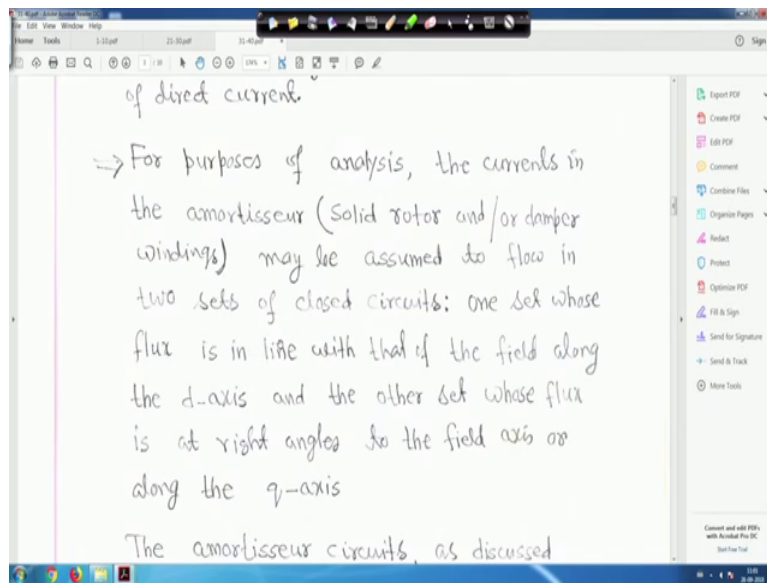 31-40.pdf - Adobe Acrobat Reader DC
File Edit View Window Help
Home Tools 1-10.pdf 21-30.pdf 31-40.pdf × Sign
of direct current.
⇒ For purposes of analysis, the currents in
the amortisseur (solid rotor and/or damper
windings) may be assumed to flow in
two sets of closed circuits: one set whose
flux is in line with that of the field along
the d-axis and the other set whose flux
is at right angles to the field axis or
along the q-axis
The amortisseur circuits, as discussed
Export PDF
Create PDF
Edit PDF
Comment
Combine Files
Organize Pages
Redact
Protect
Optimize PDF
Fill & Sign
Send for Signature
Send & Track
More Tools
Convert and edit PDFs
with Acrobat Pro DC
Start Free Trial